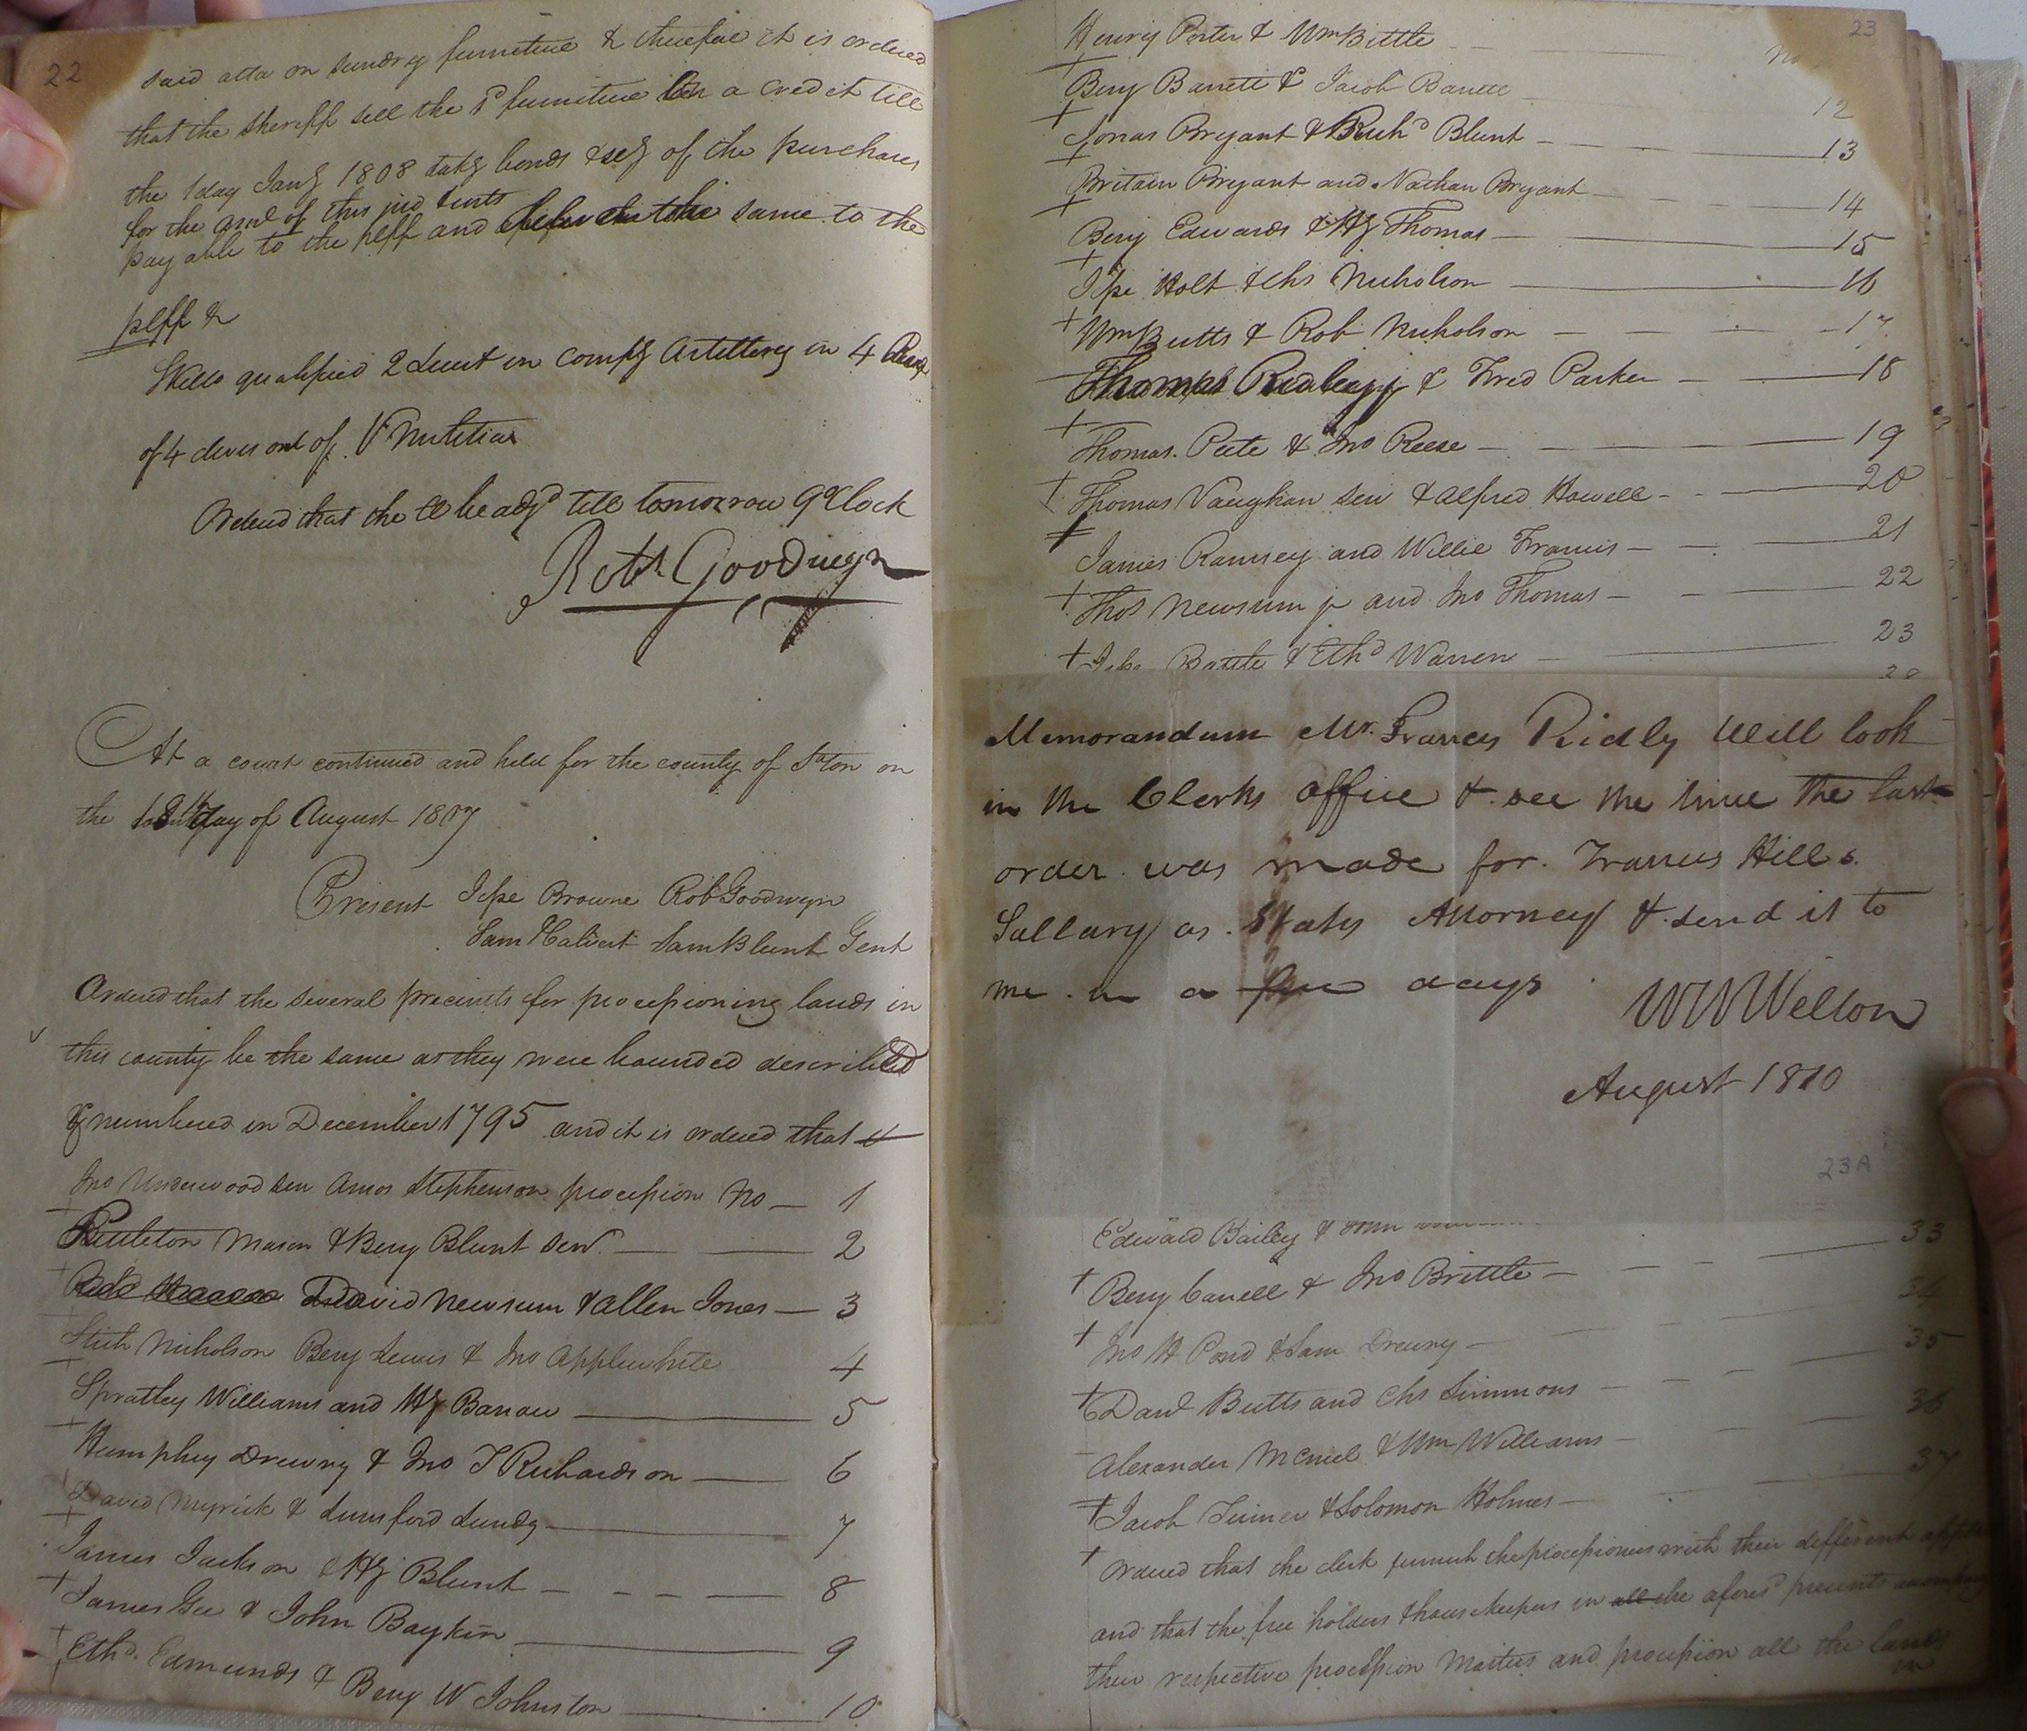 22
said atta on sundry furniture & therefore it is ordered
that the sheriff sell the sd furniture on a credit till
the 1 day Jany 1808 takg bonds & secy of the purchasers
for the amt of this jud
payable to the plff and the same to the
plff &
Skills qualified 2 Lieut in compy Artillery in 4
of 4 divis out of Va Militia
Ordered that the Ct be adjd till tomorrow 9 oClock
Robt. Goodwyn
At a court continued and held for the county of Sºton on
the 18th day of August 1807
Present Jesse Browne Rob Goodwyn
Sam Calvert Sam Blunt Gent
Ordered that the several precincts for processioning lands in
this county be the same as they were bounded described
& numbered in December 1795 and it is ordered that
Jno Underwood sen Amos Stephenson procession No — 1
Littleton Mason & Benj Blunt sen — 2
David Newsum & Allen Jones — 3
Stith Nicholson Benj Lewis & Jno Applewhite 4
Spratley Williams and Hy Barrow — 5
Humphey Drewry & Jno T Richardson — 6
David Myrick & Lunsford Lundy — 7
James Jackson & Hy Blunt — 8
James Gee & John Boykin — 9
Ethd. Edmunds & Benj W Johnston — 10
23
Henry Porter & Wm Bittle — no
Benj Barrett & Jacob Barrett 12
Jonas Bryant & Richd Blunt — 13
Britain Bryant and Nathan Bryant — 14
Benj Edwards & Hy Thomas — 15
Jesse Holt & Chs Nicholson — 16
Wm Butts & Rob Nicholson — 17
Thomas Ridley & Fred Parker — 18
Thomas Pete & Jno Reese — 19
Thomas Vaughan sen & Alfred Howell — 20
James Ramsey and Willie Francis — 21
Thos Newsum jr and Jno Thomas — 22
Jesse Battle & Ethd Warren — 23
Memorandum Mr. Francis Ridly Will look
in the Clerks office & see the time the last
order was made for Francis Hills
Sallary as States Attorney & send it to
me in a few days
WW Wilson
August 1810
23A
Edward Bailey & 33
Benj Carrell & Jno Brittle — 34
Jno H Pond & Sam Drewry — 35
Danl Butts and Chs Simmons — 36
Alexander McNiel & Wm Williams — 37
Jacob Turner & Solomon Holmes —
Ordered that the clerk furnish the processioners with their different
and that the free holders & house keepers in all the aforesd precincts
their respective procession Masters and procession all the lands
in